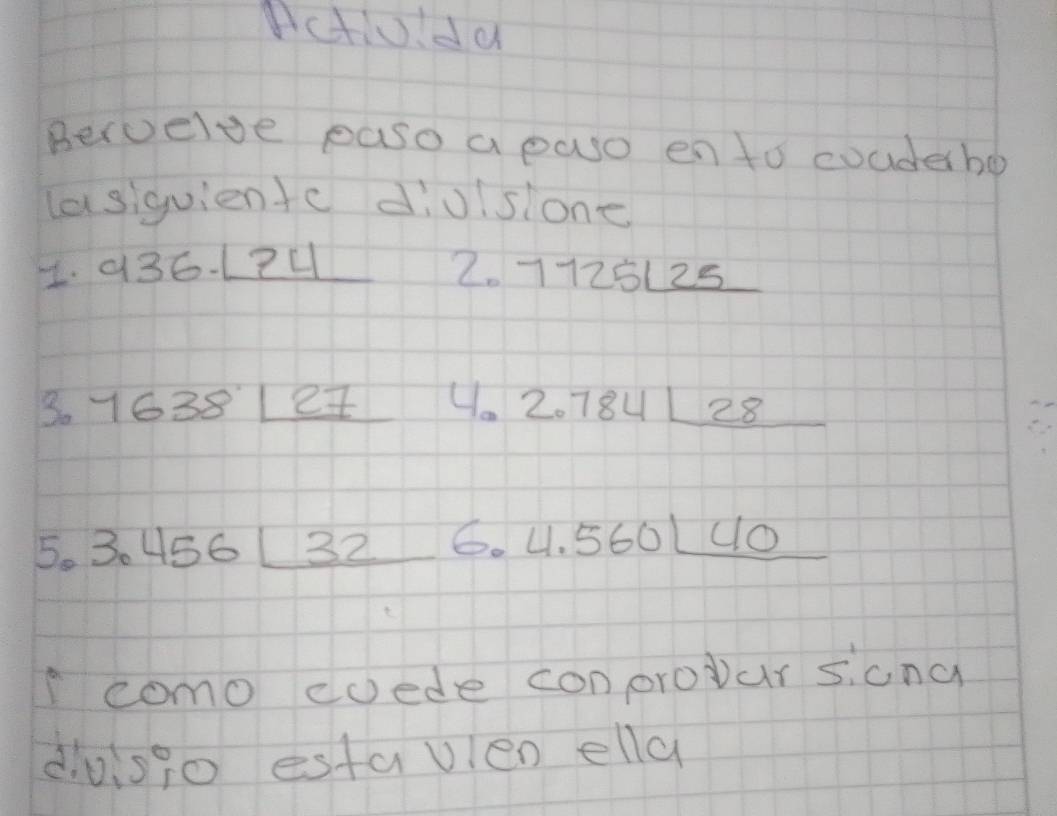 Activida
Beruelve paso a paso en tu couderbo
la siguiente divisione
1. 936. 24 2. 1125 25
3. 1638 27 4. 2.784 28
5. 3.456 32 6. 4.560 40
como cuede conprobar si una
divisio esta vien ella